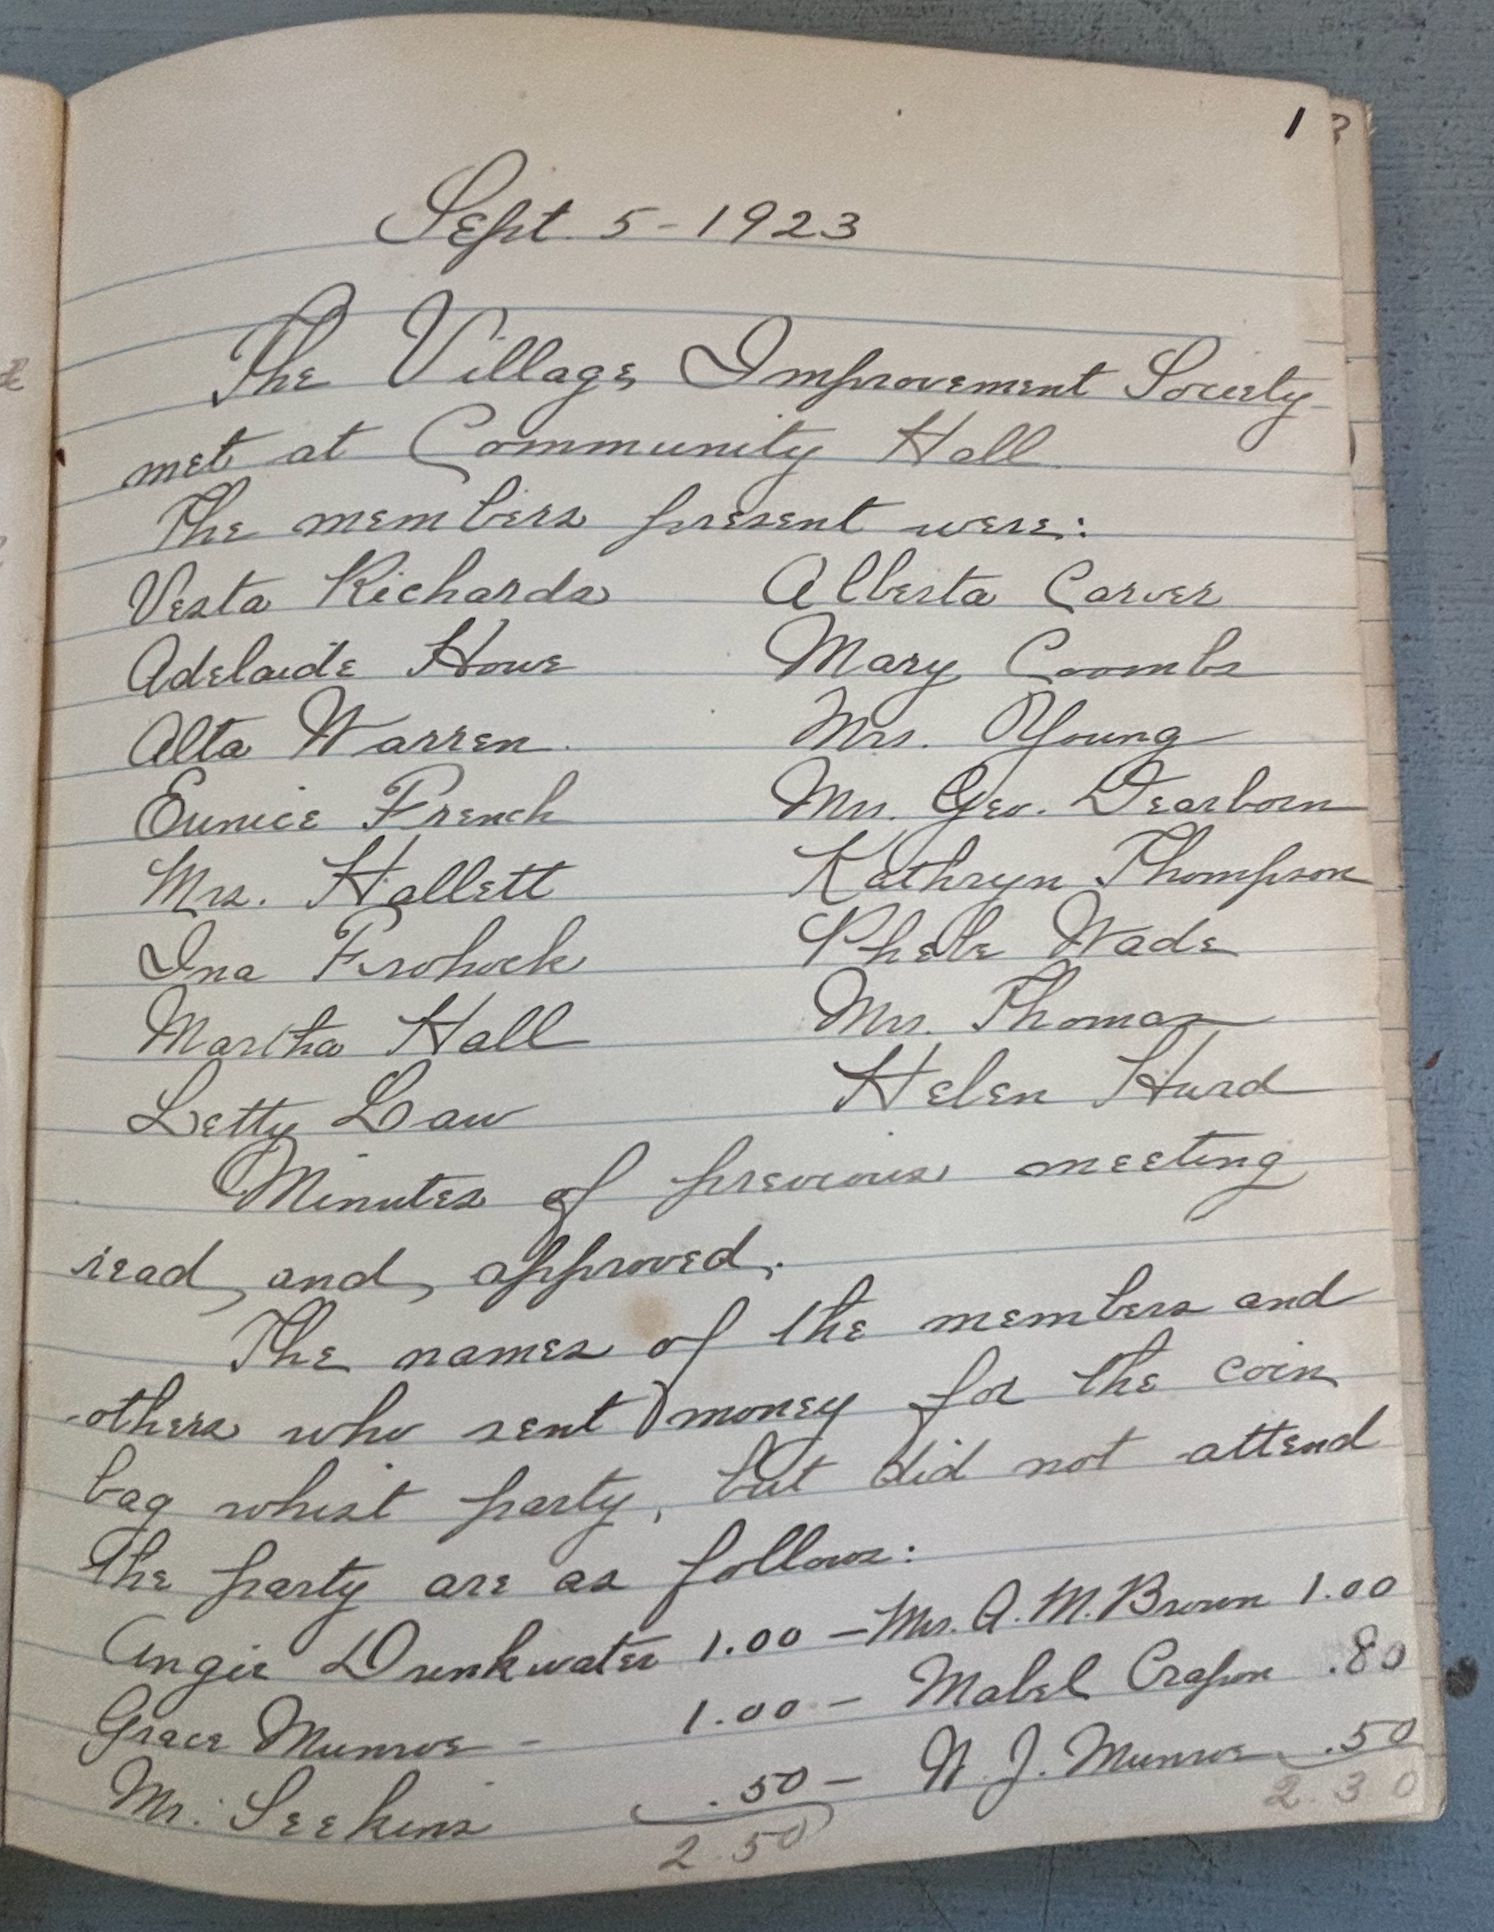 1
Sept. 5 - 1923
The Village Improvement Society
met at Community Hall.
The members present were:
Vesta Richards Alberta Carver
Adelaide Howe Mary Coombs
Alta Warren. Mrs. Young
Eunice French Mrs. Geo. Dearborn
Mrs. Hallett Kathryn Thompson
Ina Frohock Phebe Wade
Martha Hall Mrs. Thomas
Letty Law Helen Hurd
Minutes of previous meeting
read and approved.
The names of the members and
others who sent money for the coin
bag whist party, but did not attend
the party are as follows:
Angie Drinkwater 1.00 — Mrs. A. M. Brown 1.00
Grace Munroe - 1.00 — Mabel Crapon .80
Mr. Seekins .50 — N. J. Munroe .50
2.50 2.30